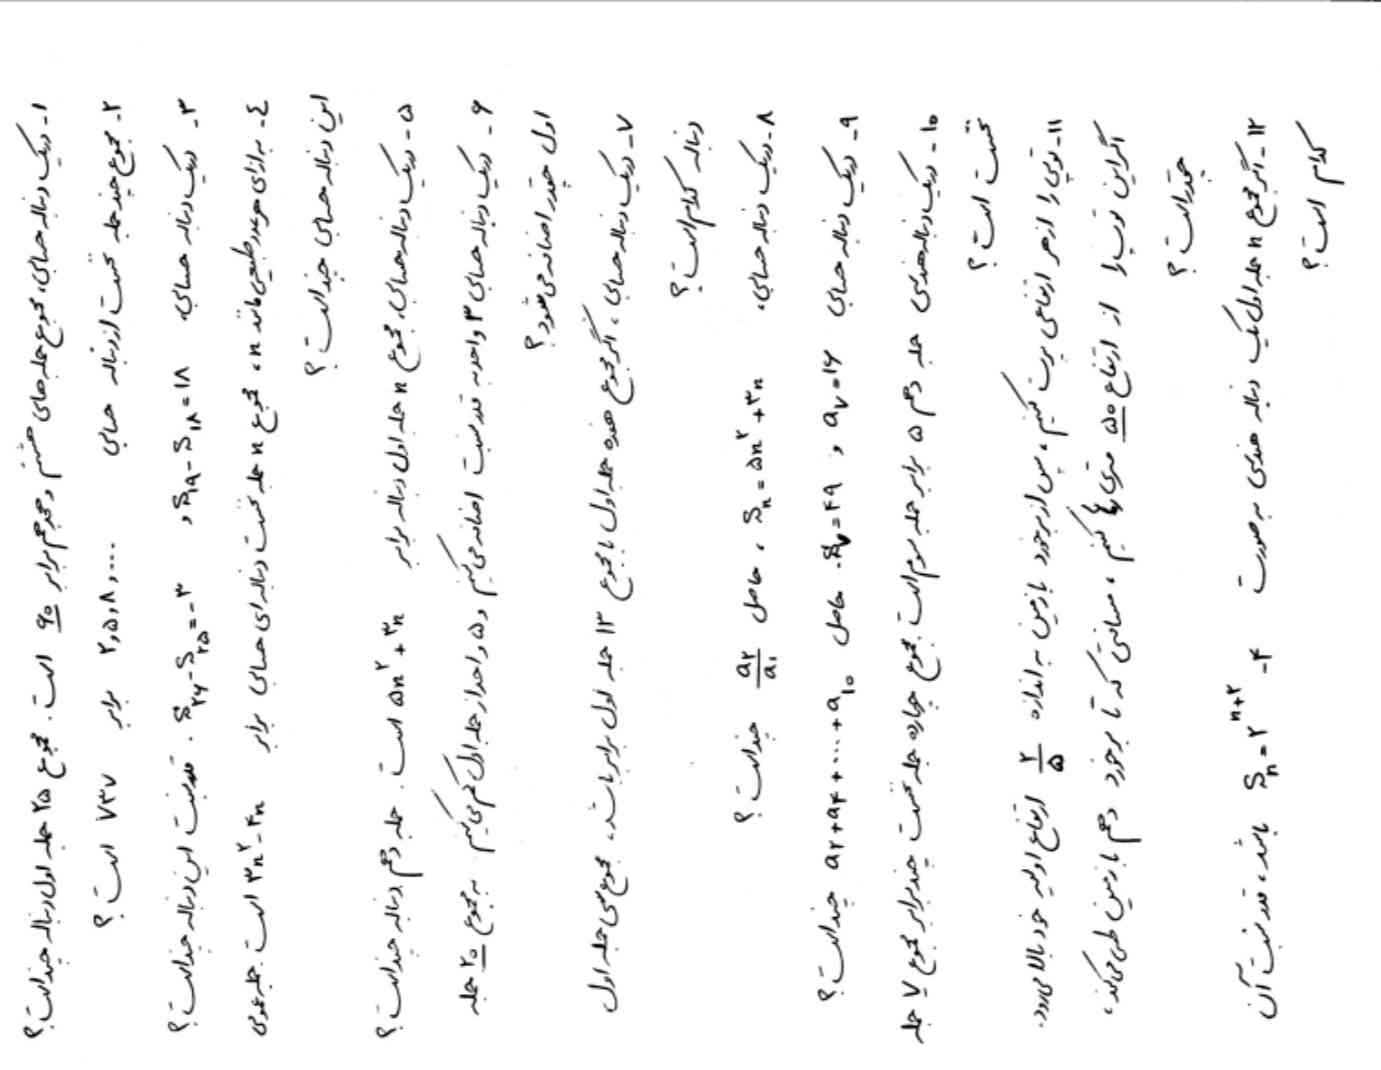 ۱- در یک دنباله حسابی، مجموع جمله‌های هشتم و هجدهم برابر ۹۰ است. مجموع ۲۵ جمله اول دنباله چند است؟
۲- مجموع چند جمله نخست از دنباله حسابی ۲,۵,۸,... برابر ۷۳۷ است؟
۳- در یک دنباله حسابی، S₁₉-S₁₈=۱۸ و S₂₆-S₂₅=-۳. قدر نسبت این دنباله چند است؟
۴- به ازای هر عدد طبیعی مانند n، مجموع n جمله نخست دنباله‌ای حسابی برابر ۳n²-۴n است. جمله عمومی
این دنباله حسابی چند است؟
۵- در یک دنباله حسابی، مجموع n جمله اول دنباله برابر ۵n²+۳n است. جمله دهم دنباله چند است؟
۶- در یک دنباله حسابی ۳ واحد به قدر نسبت اضافه می‌کنیم و ۵ واحد از جمله اول کم می‌کنیم. به مجموع ۲۰ جمله
اول چقدر اضافه می‌شود؟
۷- در یک دنباله حسابی، اگر مجموع هفده جمله اول با مجموع ۱۳ جمله اول برابر باشد، مجموع سی جمله اول
دنباله کدام است؟
۸- در یک دنباله حسابی، Sₙ=۵n²+۳n، حاصل a₂/a₁ چند است؟
۹- در یک دنباله حسابی a₇=۱۶ و S₇=۴۹. حاصل a₂+a₴+...+a₁₀ چند است؟
۱۰- در یک دنباله هندسی جمله دهم ۵ برابر جمله سوم است. مجموع چهارده جمله نخست چند برابر مجموع ۷ جمله
نخست است؟
۱۱- توپی را از هر ارتفاعی پرت کنیم، پس از برخورد با زمین به اندازه ۲/۵ ارتفاع اولیه خود بالا می‌رود.
اگر این توپ را از ارتفاع ۵۰ متری رها کنیم، مسافتی که تا برخورد دهم با زمین طی می‌کند،
چقدر است؟
۱۲- اگر مجموع n جمله اول یک دنباله هندسی به صورت Sₙ=۲ⁿ⁺²-۴ باشد، قدر نسبت آن
کدام است؟